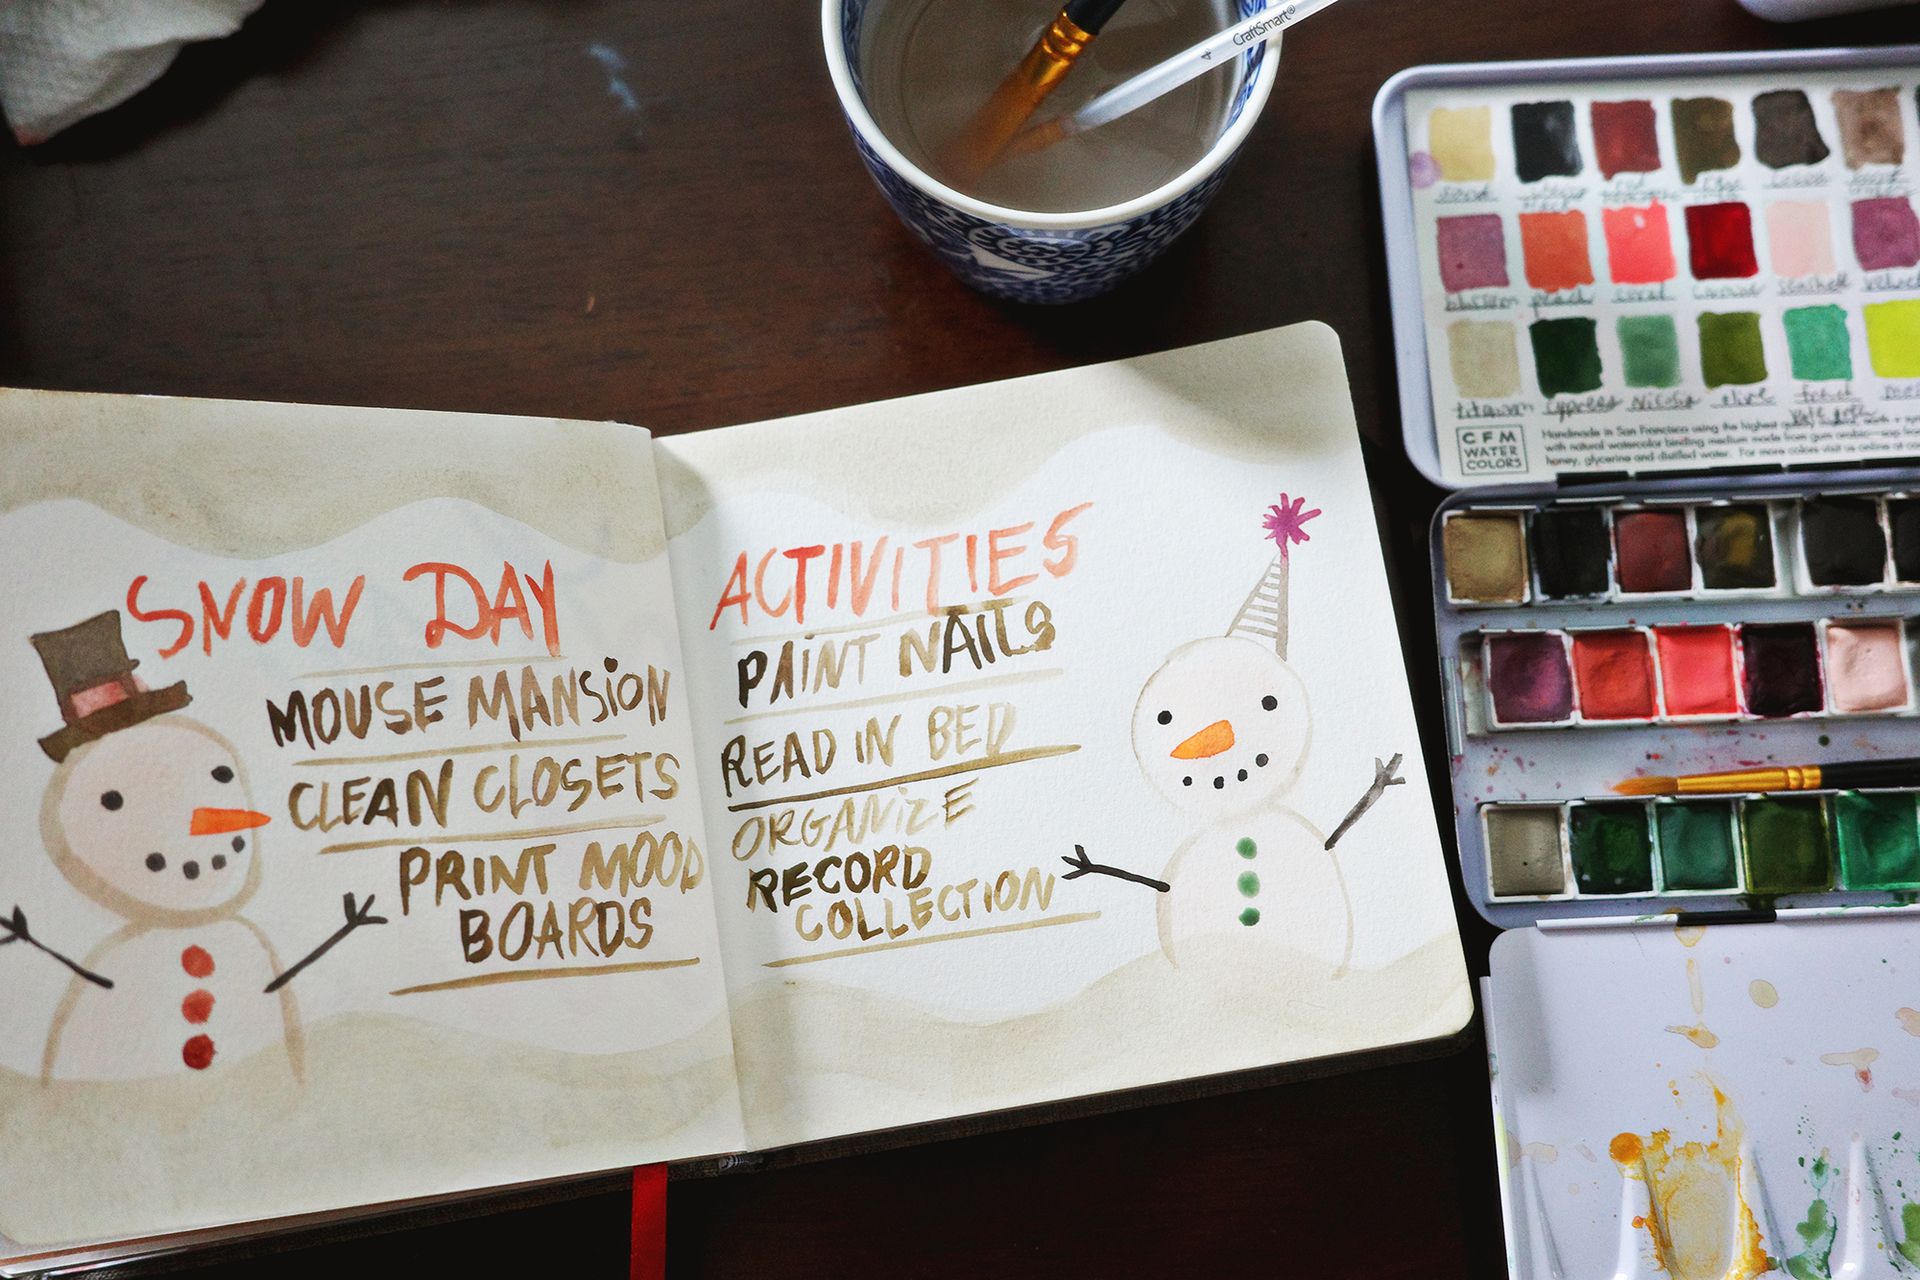 SNOW DAY
MOUSE MANSION
CLEAN CLOSETS
PRINT MOOD
BOARDS
ACTIVITIES
PAINT NAILS
READ IN BED
ORGANIZE
RECORD
COLLECTION
4 CraftSmart®
blossom peach coral seashell velvet
titanium cypress olive
CFM
WATER
COLORS
Handmade in San Francisco using the highest
with natural watercolor binding medium made from gum
honey, glycerine and distilled water. For more colors visit us online at